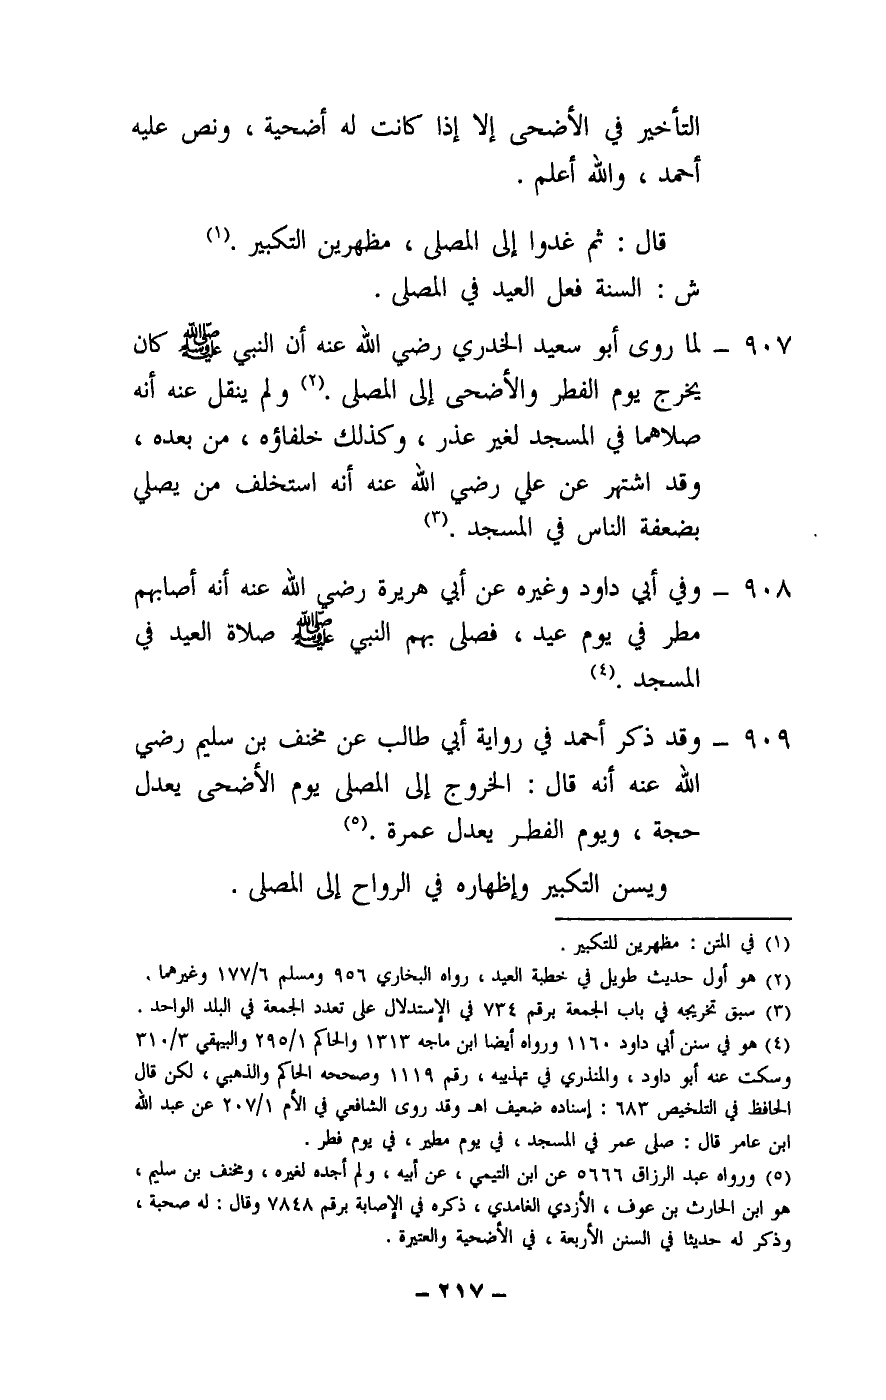 التأخير في الأضحى إلا إذا كانت له أضحية ، ونص عليه
أحمد ، والله أعلم .
قال : ثم غدوا إلى المصلى ، مظهرين التكبير .(١)
ش : السنة فعل العيد في المصلى .
٩٠٧ – لما روى أبو سعيد الخدري رضي الله عنه أن النبي ﷺ كان
يخرج يوم الفطر والأضحى إلى المصلى .(٢) ولم ينقل عنه أنه
صلاهما في المسجد لغير عذر ، وكذلك خلفاؤه ، من بعده ،
وقد اشتهر عن علي رضي الله عنه أنه استخلف من يصلي
بضعفة الناس في المسجد .(٣)
٩٠٨ – وفي أبي داود وغيره عن أبي هريرة رضي الله عنه أنه أصابهم
مطر في يوم عيد ، فصلى بهم النبي ﷺ صلاة العيد في
المسجد .(٤)
٩٠٩ – وقد ذكر أحمد في رواية أبي طالب عن مخنف بن سليم رضي
الله عنه أنه قال : الخروج إلى المصلى يوم الأضحى يعدل
حجة ، ويوم الفطر يعدل عمرة .(٥)
ويسن التكبير وإظهاره في الرواح إلى المصلى .
(١) في المتن : مظهرين للتكبير .
(٢) هو أول حديث طويل في خطبة العيد ، رواه البخاري ٩٥٦ ومسلم ١٧٧/٦ وغيرهما .
(٣) سبق تخريجه في باب الجمعة برقم ٧٣٤ في الإستدلال على تعدد الجمعة في البلد الواحد .
(٤) هو في سنن أبي داود ١١٦٠ ورواه أيضا ابن ماجه ١٣١٣ والحاكم ٢٩٥/١ والبيهقي ٣١٠/٣
وسكت عنه أبو داود ، والمنذري في تهذيبه ، رقم ١١١٩ وصححه الحاكم والذهبي ، لكن قال
الحافظ في التلخيص ٦٨٣ : إسناده ضعيف اهـ وقد روى الشافعي في الأم ٢٠٧/١ عن عبد الله
ابن عامر قال : صلى عمر في المسجد ، في يوم مطير ، في يوم فطر .
(٥) ورواه عبد الرزاق ٥٦٦٦ عن ابن التيمي ، عن أبيه ، ولم أجده لغيره ، ومخنف بن سليم ،
هو ابن الحارث بن عوف ، الأزدي الغامدي ، ذكره في الإصابة برقم ٧٨٤٨ وقال : له صحبة ،
وذكر له حديثا في السنن الأربعة ، في الأضحية والعتيرة .
– ٢١٧ –